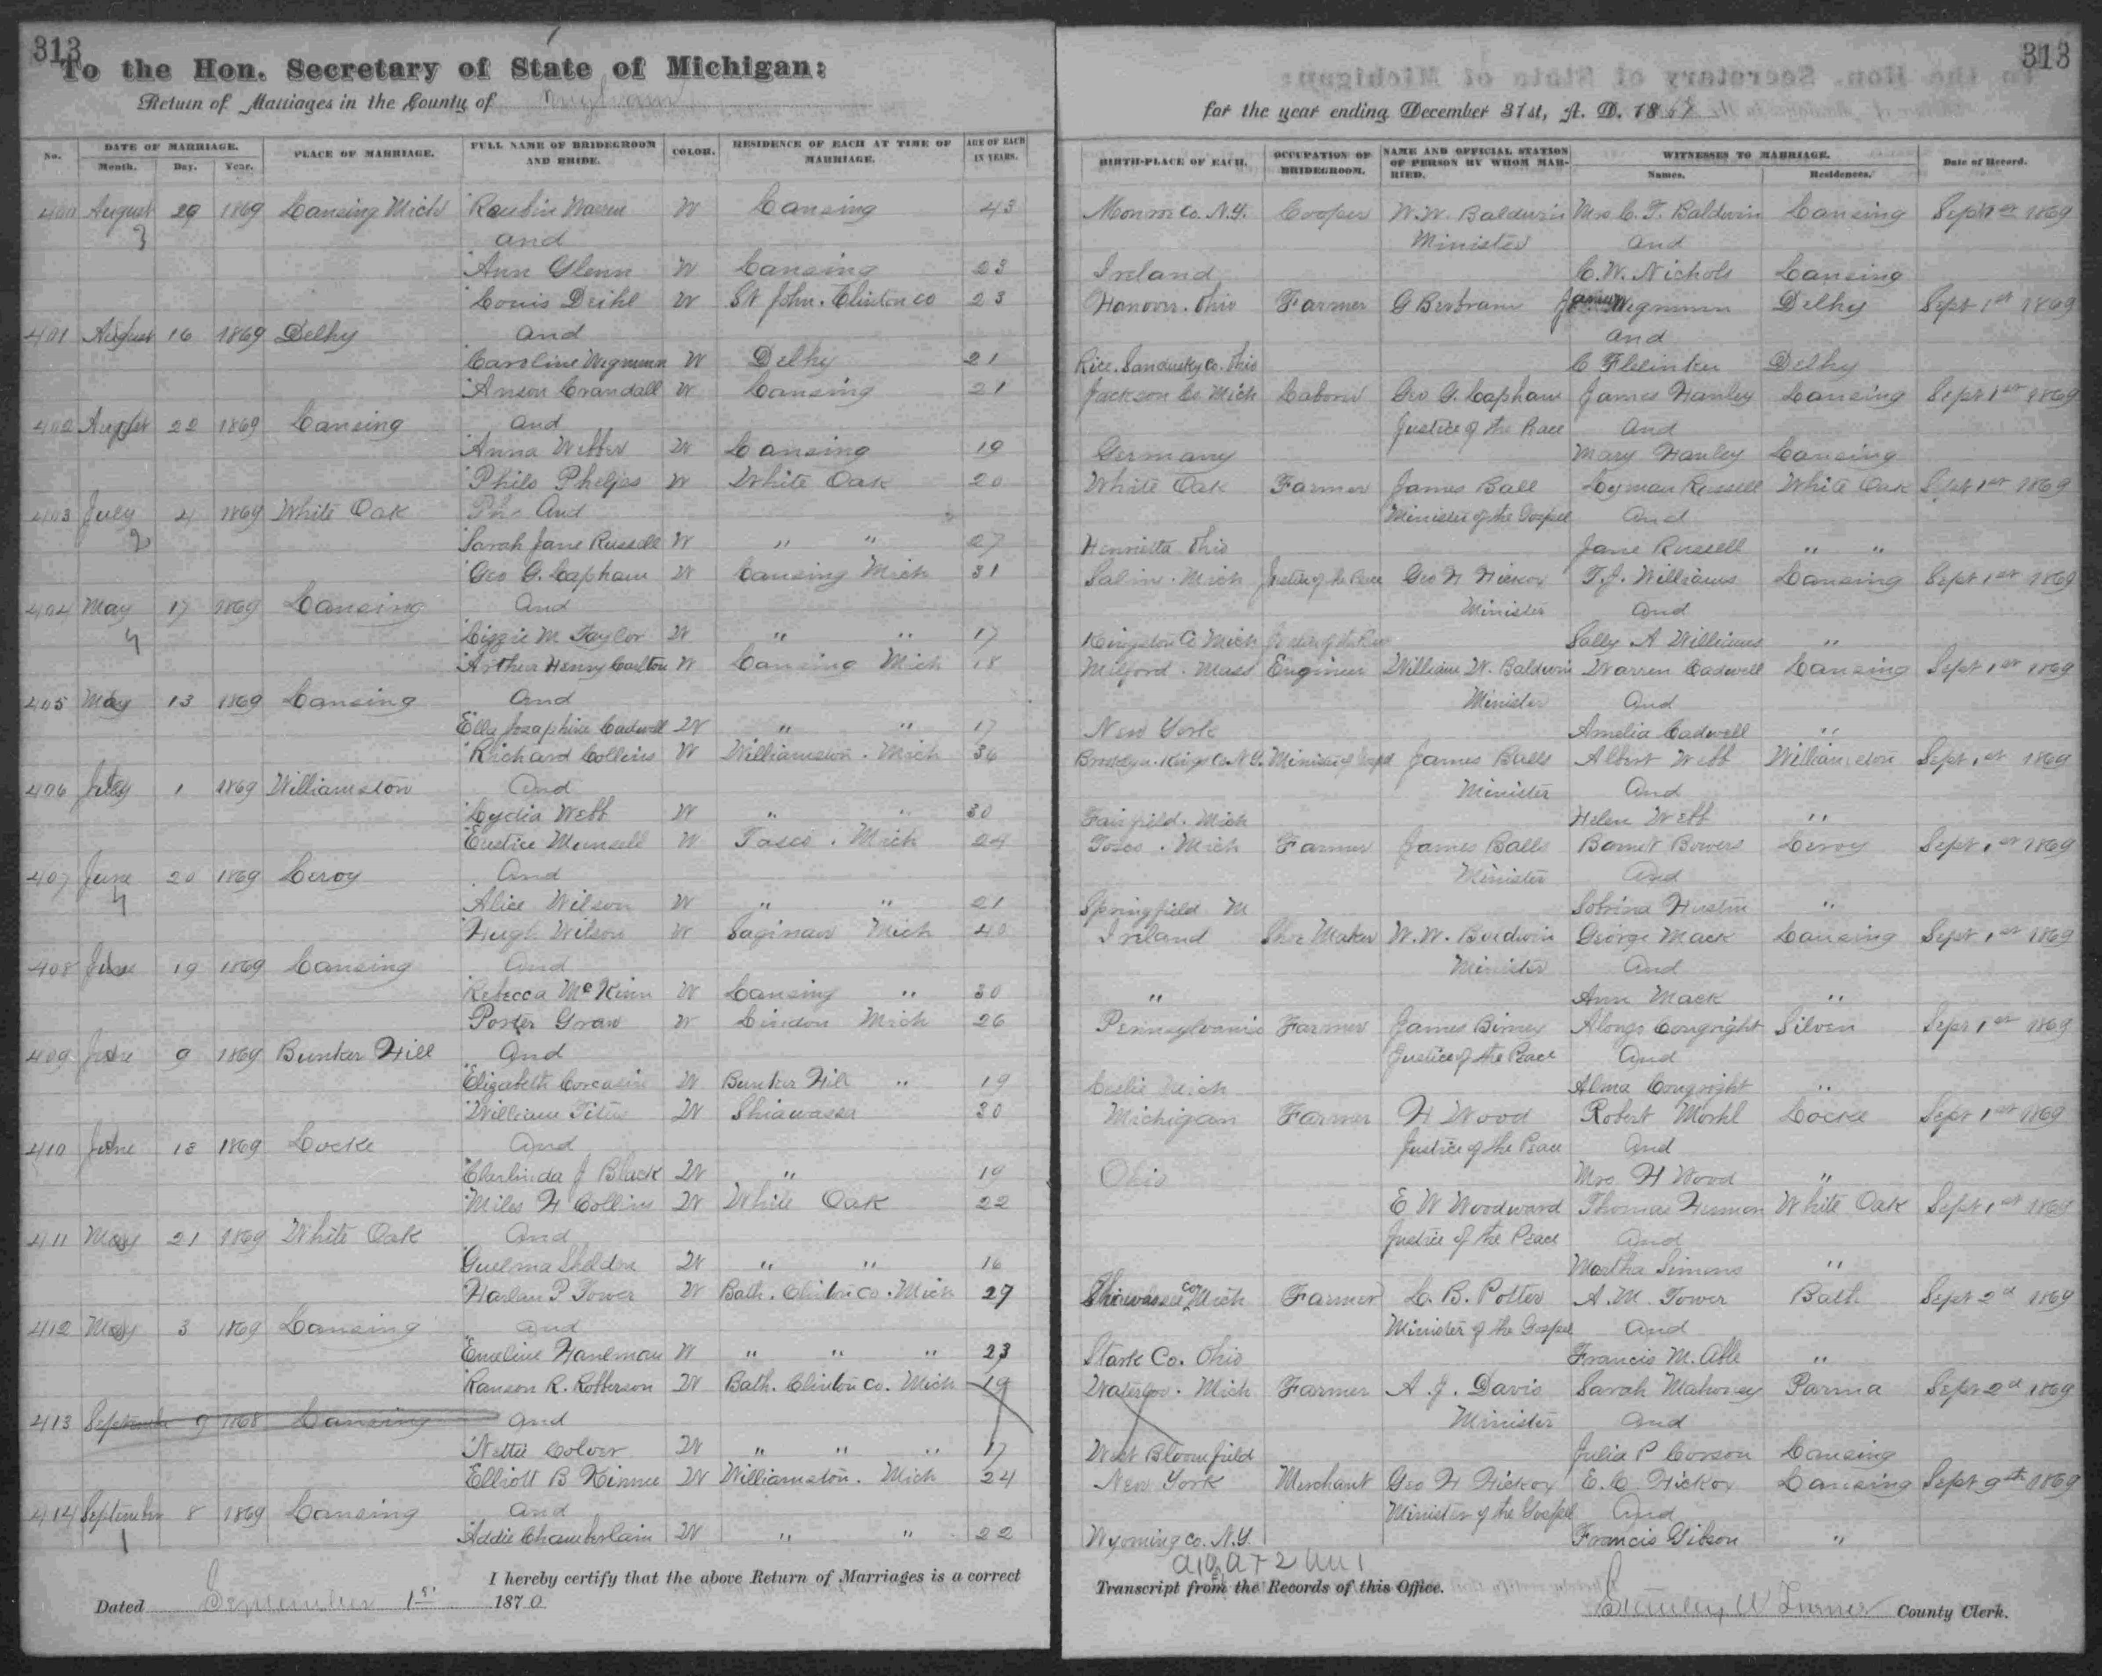 313
To the Hon. Secretary of State of Michigan:
Return of Marriages in the County of Ingham
No. DATE OF MARRIAGE. Month. Day. Year. PLACE OF MARRIAGE. FULL NAME OF BRIDEGROOM AND BRIDE. COLOR. RESIDENCE OF EACH AT TIME OF MARRIAGE. AGE OF EACH IN YEARS.
400 August 29 1869 Lansing Mich Reubin Warren W Lansing 43
3 and
Ann Glenn W Lansing 23
Louis Deihl W St John. Clinton co 23
401 August 16 1869 Delhy and
Caroline Wegmunn W Delhy 21
Anson Crandall W Lansing 21
402 August 22 1869 Lansing and
Anna Webber W Lansing 19
Philo Phelps W White Oak 20
403 July 4 1869 White Oak And
2 Sarah Jane Russell W " " 27
Geo G. Lapham W Lansing Mich 31
404 May 17 1869 Lansing And
4 Lizzie M Taylor W " " 17
Arthur Henry Carlton W Lansing Mich 18
405 May 13 1869 Lansing And
Ella Josaphine Cadwell W " " 17
Richard Collins W Williamston. Mich 36
406 July 1 1869 Williamston And
Lydia Webb W " " 30
Eustice Munsell W Iosco. Mich 24
407 June 20 1869 Leroy And
4 Alice Wilson W " " 21
Hugh Wilson W Saginaw Mich 40
408 June 19 1869 Lansing And
Rebecca McKinn W Lansing " 30
Porter Graw W Lindon Mich 26
409 June 9 1869 Bunker Hill And
Elizabeth W Bunker Hill " 19
William Titus W Shiawassa 30
410 June 13 1869 Locke And
J Black W " 19
Miles H Collins W White Oak 22
411 May 21 1869 White Oak And
Guelma Sheldon W " " 16
Harlan P Tower W Bath. Clinton co. Mich 29
412 May 3 1869 Lansing and
Emeline Hanlman W " " " 23
Ranson R. Robberson W Bath. Clinton co. Mich 19
413 September 9 1868 Lansing and
Nettie Colver W " " " 17
Elliott B Kinnee W Williamston. Mich 24
414 September 8 1869 Lansing and
1 Addie Chamberlain W " " 22
I hereby certify that the above Return of Marriages is a correct
Dated September 1st 1870
313
for the year ending December 31st, A. D. 1869
BIRTH-PLACE OF EACH. OCCUPATION OF BRIDEGROOM. NAME AND OFFICIAL STATION OF PERSON BY WHOM MARRIED. WITNESSES TO MARRIAGE. Names. Residences. Date of Record.
Monroe Co. N.Y. Cooper W.W. Baldwin Mrs C. T. Baldwin Lansing Sept 1st 1869
Minister and
Ireland C.W. Nichols Lansing
Hanover. Ohio Farmer G Bertram James Wegmunn Delhy Sept 1st 1869
and
Rice. Sandusky Co. Ohio C Delhy
Jackson Co Mich Laborer Geo G. Lapham James Hanley Lansing Sept 1st 1869
Justice of the Peace And
Germany Mary Hanley Lansing
White Oak Farmer James Ball Lyman Russell White Oak Sept 1st 1869
Minister of the Gospel And
Henrietta Ohio Jane Russell " "
Saline. Mich Justice of the Peace Geo H Hickox T.J. Williams Lansing Sept 1st 1869
Minister and
Kingston Co Mich Justice of the Peace Sally A Williams "
Milford. Mass Engineer William W. Baldwin Warren Cadwell Lansing Sept 1st 1869
Minister And
New York Amelia Cadwell "
Brooklyn. Kings Co N.Y. Minister of Gospel James Balls Albert Webb Williamston Sept 1st 1869
Minister And
Fairfield. Mich Helen Webb "
Iosco. Mich Farmer James Balls Bowers Leroy Sept 1st 1869
Minister And
Springfield M Sobrina Huston "
Ireland Shoe Maker W.W. Baldwin George Mack Lansing Sept 1st 1869
Minister And
" Ann Mack "
Pennsylvania Farmer James Birney Alonzo Congright Silven Sept 1st 1869
Justice of the Peace And
Leslie Mich Alma Congright "
Michigan Farmer H Wood Robert Locke Sept 1st 1869
Justice of the Peace And
Ohio Mrs H Wood "
E W Woodward Thomas White Oak Sept 1st 1869
Justice of the Peace And
Martha Simons "
Shiawassee Co Mich Farmer L. B. Potter A. M. Tower Bath. Sept 2d 1869
Minister of the Gospel And
Stark Co. Ohio Francis M. Able "
Waterloo. Mich Farmer A. J. Davis Sarah Mahoney Parma Sept 2d 1869
Minister and
West Bloomfield Julia P Corson Lansing
New York Merchant Geo H Hickox E. C. Hickox Lansing Sept 9th 1869
Minister of the Gospel And
Wyoming Co. N.Y. Francis Gibson "
Transcript from the Records of this Office.
Stanley W Turner County Clerk.